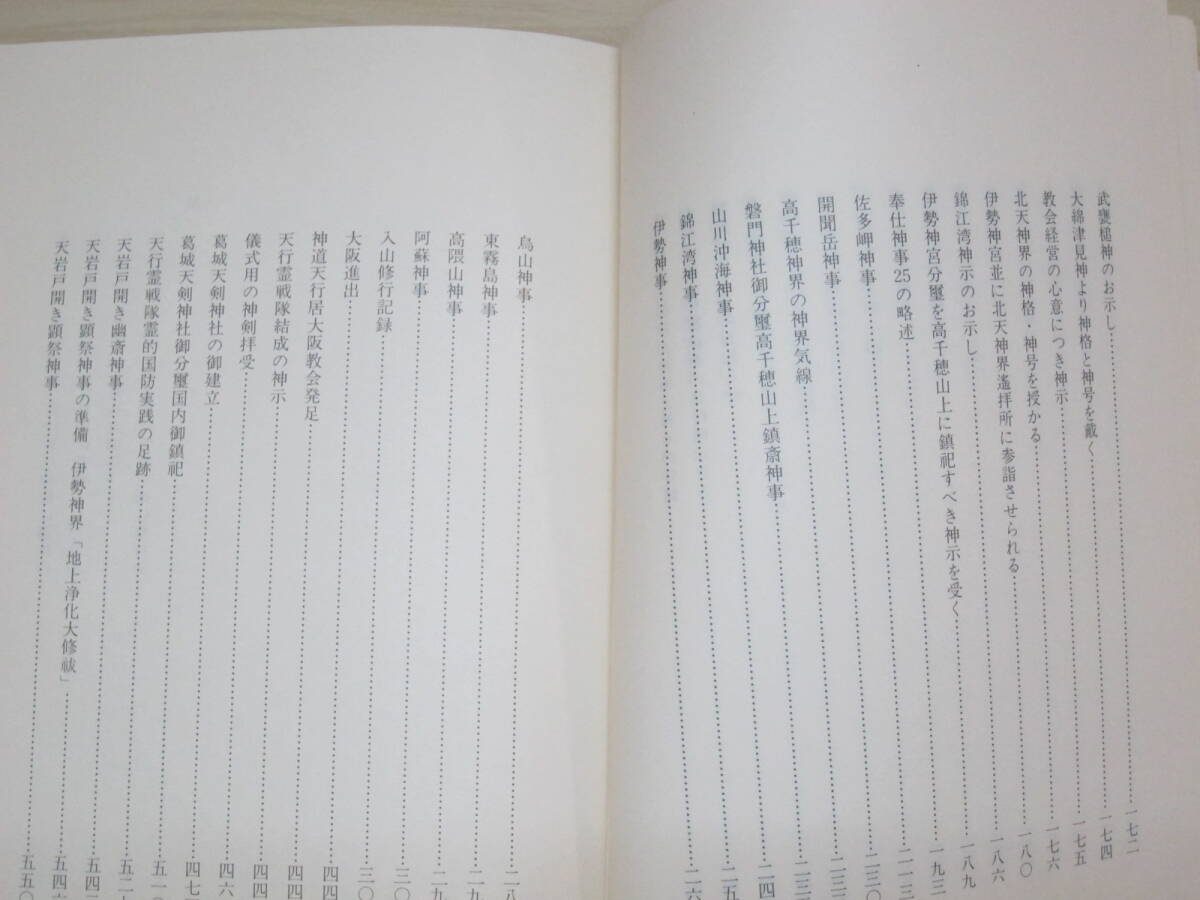 武甕槌神のお示し……一七二
大綿津見神より神格と神号を戴く……一七四
教会経営の心意につき神示……一七五
北天神界の神格・神号を授かる……一七六
伊勢神宮並に北天神界遙拝所に参詣させられる……一八〇
錦江湾神示のお示し……一八六
伊勢神宮分璽を高千穂山上に鎮祀すべき神示を受く……一八九
奉仕神事25の略述……一九三
佐多岬神事……二一三
開聞岳神事……二三〇
高千穂神界の神界気線……二三
磐門神社御分璽高千穂山上鎮斎神事……
山川沖海神事……二四
錦江湾神事……二五
伊勢神事……二六
烏山神事……二八
東霧島神事……二九
高隈山神事……二九
阿蘇神事……三〇
入山修行記録……三〇
大阪進出……四四
神道天行居大阪教会発足……四四
天行霊戦隊結成の神示……四四
儀式用の神剣拝受……四六
葛城天剣神社の御建立……四七
葛城天剣神社御分璽国内御鎮祀……五一〇
天行霊戦隊霊的国防実践の足跡……五二
天岩戸開き幽斎神事……五四二
天岩戸開き顕祭神事の準備 伊勢神界「地上浄化大修祓」……五四六
天岩戸開き顕祭神事……五五〇